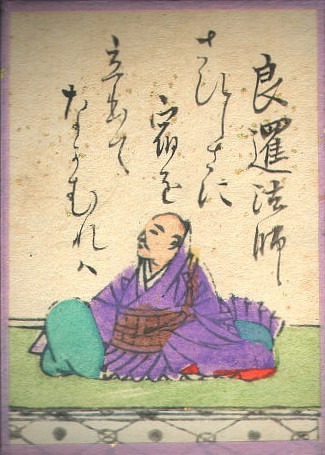 良暹法師
さひしさに
宿を
立出て
なかむれハ